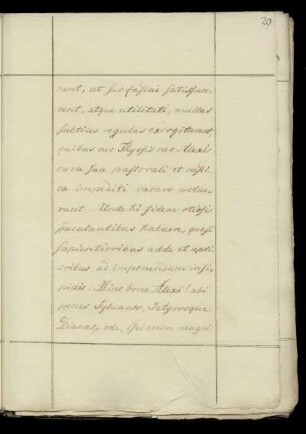 20
runt, ut
atque utilitati, multas
subtiles regulas excogitarunt
quibus nec Thyrsis nec Alexis
cura sua pastorali et rusti
ca impediti vacare potue
runt. Unde hi fidem otiose
speculantibus habuere, quasi
sapientioribus adde et apti
oribus ad imponendum insi
pidis. Hinc bone Alexi! abi
penes Sylvanos, Satyrosque
Dianas, ede, ipsi enim magni